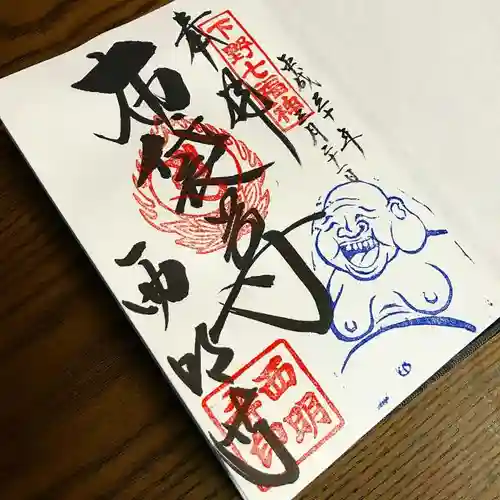 平成三十年
三月二十一日
下野七福神
奉拝
布袋尊
西明寺
西明寺印